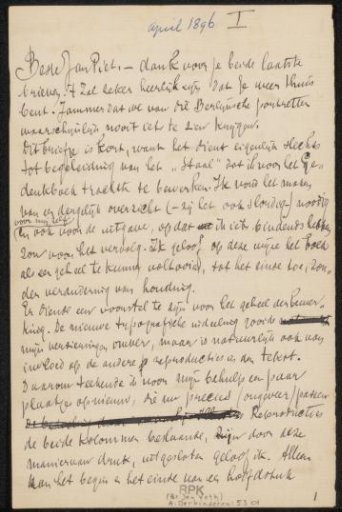 april 1896 I
Beste Jan Piet. — dank voor je beide laatste
brieven. 't Zal zeker heerlijk zijn dat je weer thuis
bent. Jammer dat we van die Berlijnsche portretten
waarschijnlijk nooit iets te zien krijgen.
Dit briefje is kort, want het dient eigenlijk slechts
tot begeleiding van het „Staal" dat ik voor het Ge-
denkboek trachtte te bewerken. Ik vond het maken
van een dergelijk overzicht (— zij het ook slordig —) noodig
voor mij zelf
en ook voor de uitgave, opdat ik iets bindends hebben
zou voor het vervolg. Ik geloof op deze wijze het boek
als een geheel te kunnen voltooien, tot het einde toe, zon-
der verandering van houding.
Er diende een voorstel te zijn voor het geheel der bewer-
king. De nieuwe typografische indeeling
mijn versieringen onver, maar is natuurlijk ook van
invloed op de andere reproducties en den tekst.
Daarom teekende ik voor mijn behulp een paar
plaatjes opnieuw, die nu precies (ongeveer) passen
Reproducties
de beide kolommen beslaande, zijn door deze
manier van druk, uitgesloten geloof ik. Alleen
kan het begin en het einde van een hoofdstuk
RPK
(Br. Jan Veth)
A. Derkinderen 53 01
1